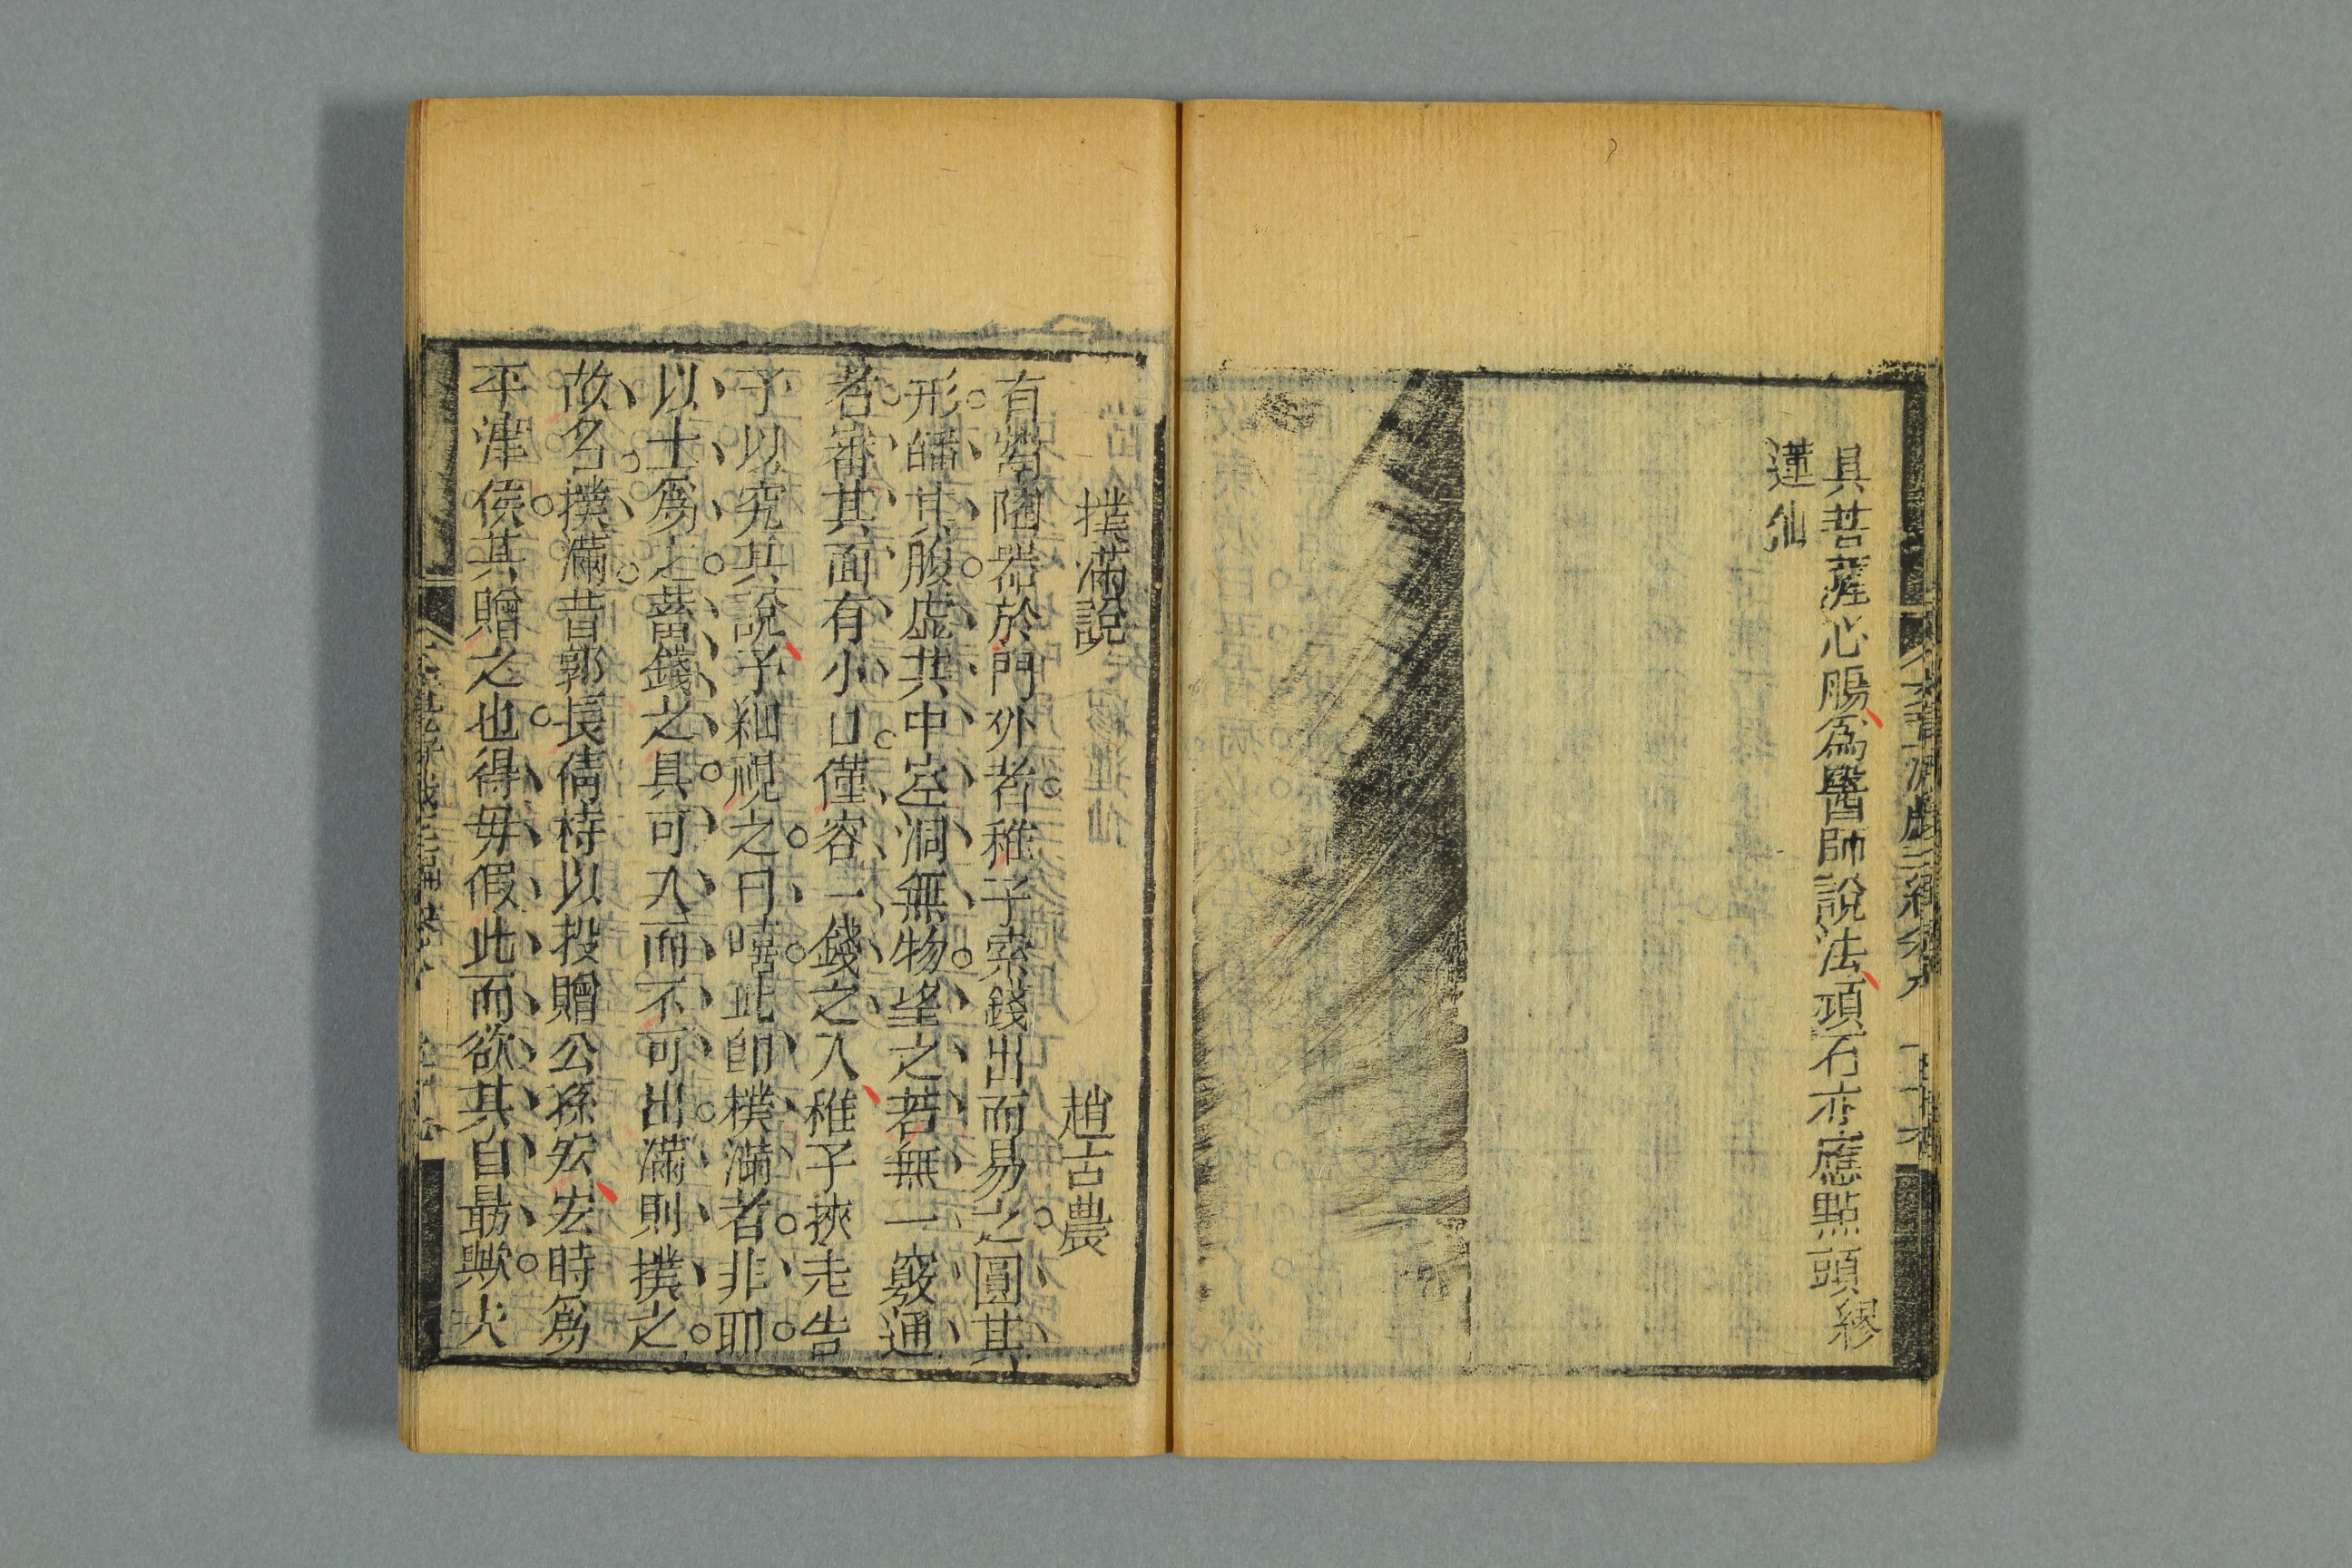 具菩薩心腸為醫師說法項石亦應點頭 繆
蓮仙
撲滿說 趙古農
有鬻陶器於門外者稚子索錢出而易之圓其
形皤其腹虛其中空洞無物望之若無一竅通
者審其面有小口僅容一錢之入稚子挾走告
予以究其說予細視之曰嘻此卽撲滿者非耶
以土爲之蓄錢之具可入而不可出滿則撲之
故名撲滿昔郭長倩特以投贈公孫宏宏時爲
平津侯其贈之也得毋假此而欲其自勗歟夫